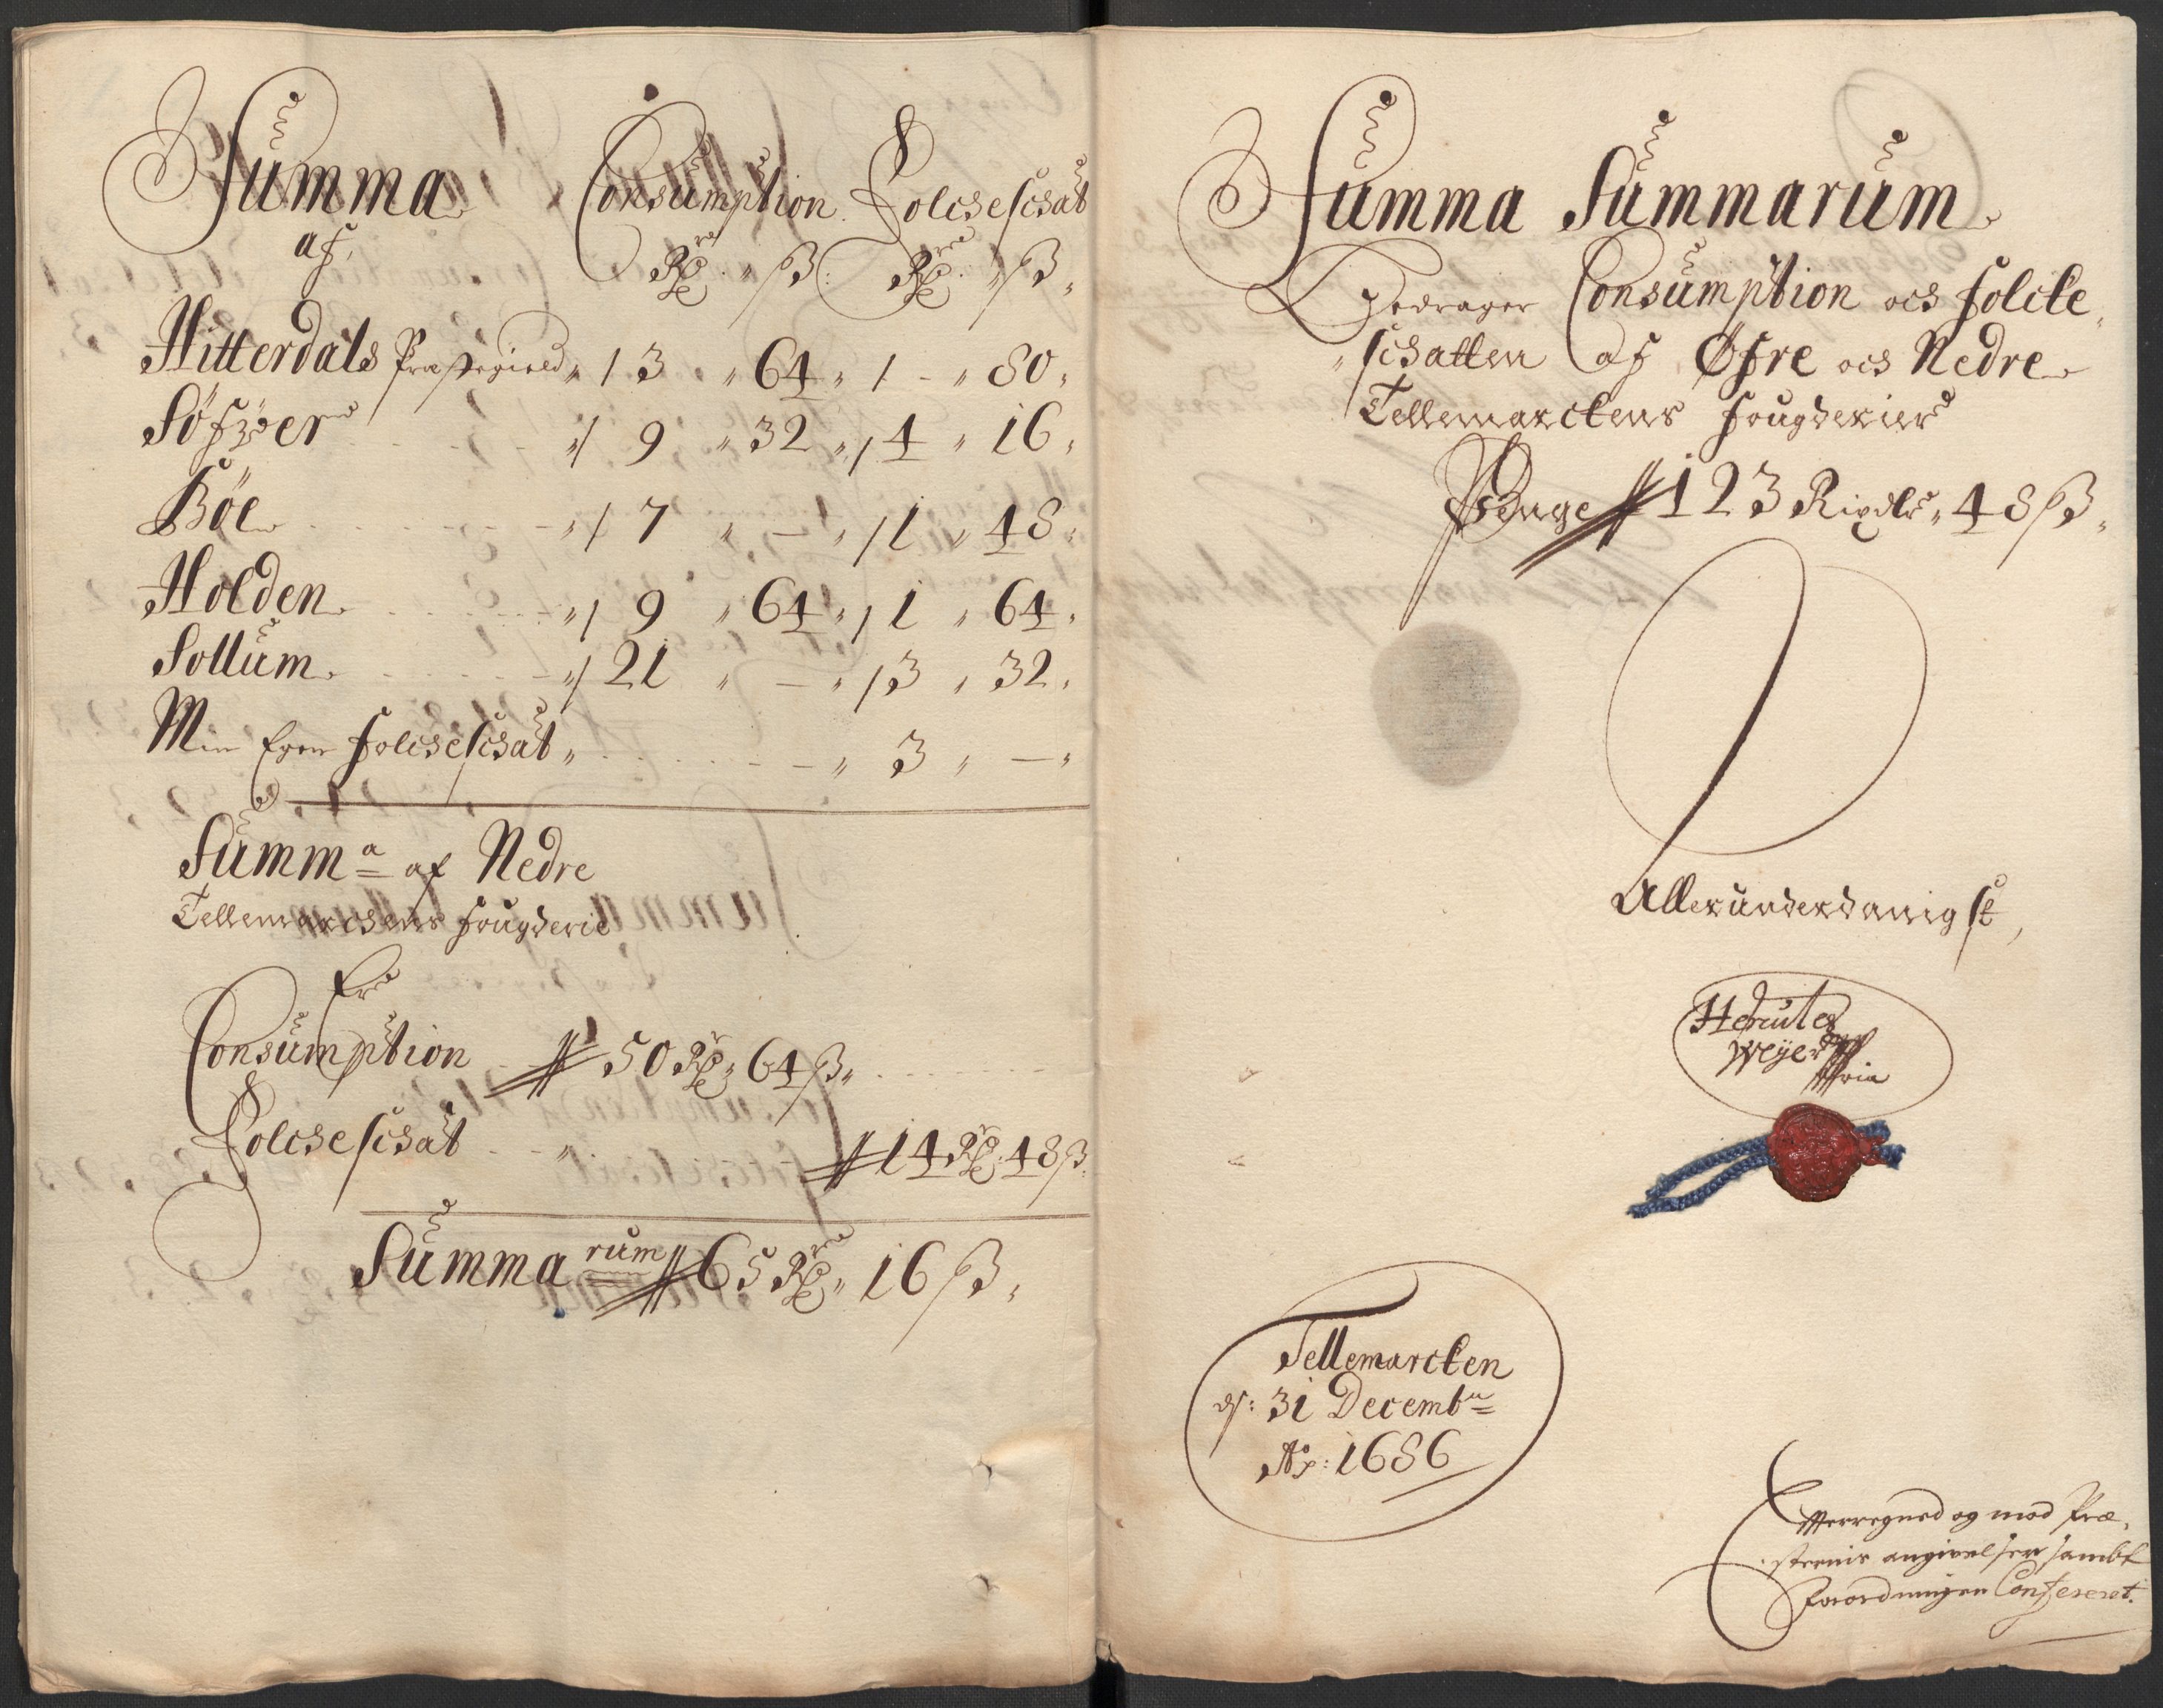 Summa Consumption. Folcheschat
af, Rdr. ß: Rdr. ß,
Hitterdals Præstegield, 13 , 64, 1 - , 80,
Söfver - - - ,/ 9 , 32 ,/ 4 , 16,
Böe - - - ,/ 7 , - ,/ 1 , 48,
Holden - - - ,/ 9 , 64 ,/ 1 , 64,
Sollum - - - ,/ 21 , - ,/ 3 , 32,
Min Egen Folcheschat, - - - , 3 , - ,
Summa af Nedre
Tellemarchens Fougderie
Er
Consumption # 50 Rdr, 64 ß,
Folcheschat - - , # 14 Rdr, 48 ß.
Summarum # 65 Rdr, 16 ß,
Summa Summarum
Bedrager Consumption och Folcke,
schatten af Øfre och Nedre
Tellemarckens Fougderier
Penge # 123 Rixdlr, 48 ß,
Allerunderdanigst,
Hercules
Weyer
mria
Tellemarcken
d: 31 Decembr
Ao: 1686
Efterregned og med Præ,
sternis angivelser sambt
Forordningen Confereret.